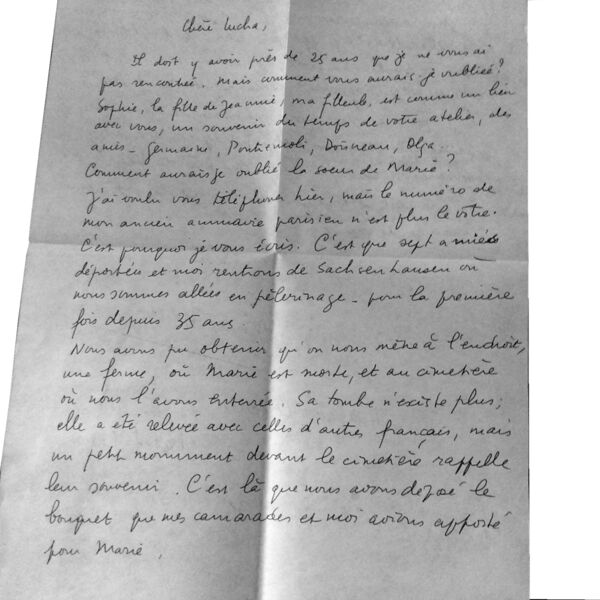 Chère Lucha,
Il doit y avoir près de 25 ans que je ne vous ai
pas rencontrée. Mais comment vous aurais-je oubliée ?
Sophie, la fille de Jeannie, ma filleule, est comme un lien
avec vous, un souvenir du temps de votre atelier, des
amis - Germaine, Doisneau, Olga.
Comment aurais-je oublié la soeur de Marie ?
J'ai voulu vous téléphoner hier, mais le numéro de
mon ancien annuaire parisien n'est plus le votre.
C'est pourquoi je vous écris. C'est que sept amies
déportées et moi rentrons de Sachsenhausen où
nous sommes allées en pèlerinage - pour la première
fois depuis 35 ans.
Nous avons pu obtenir qu'on nous mène à l'endroit,
une ferme, où Marie est morte, et au cimetière
où nous l'avons enterrée. Sa tombe n'existe plus ;
elle a été relevée avec celles d'autres français, mais
un petit monument devant le cimetière rappelle
leur souvenir. C'est là que nous avons déposé le
bouquet que mes camarades et moi avions apporté
pour Marie.